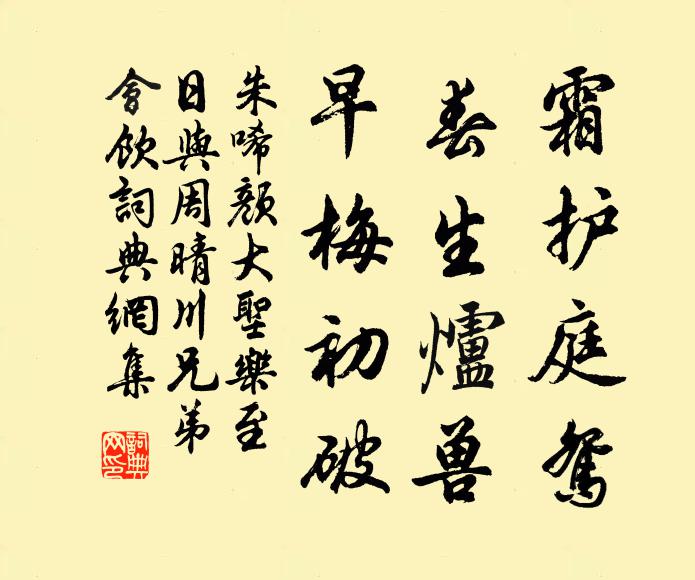 霜护庭鸳
春生爐兽
早梅初破
朱唏颜大聖樂至
日與周晴川兄弟
會飲詞典網集
詞典网印